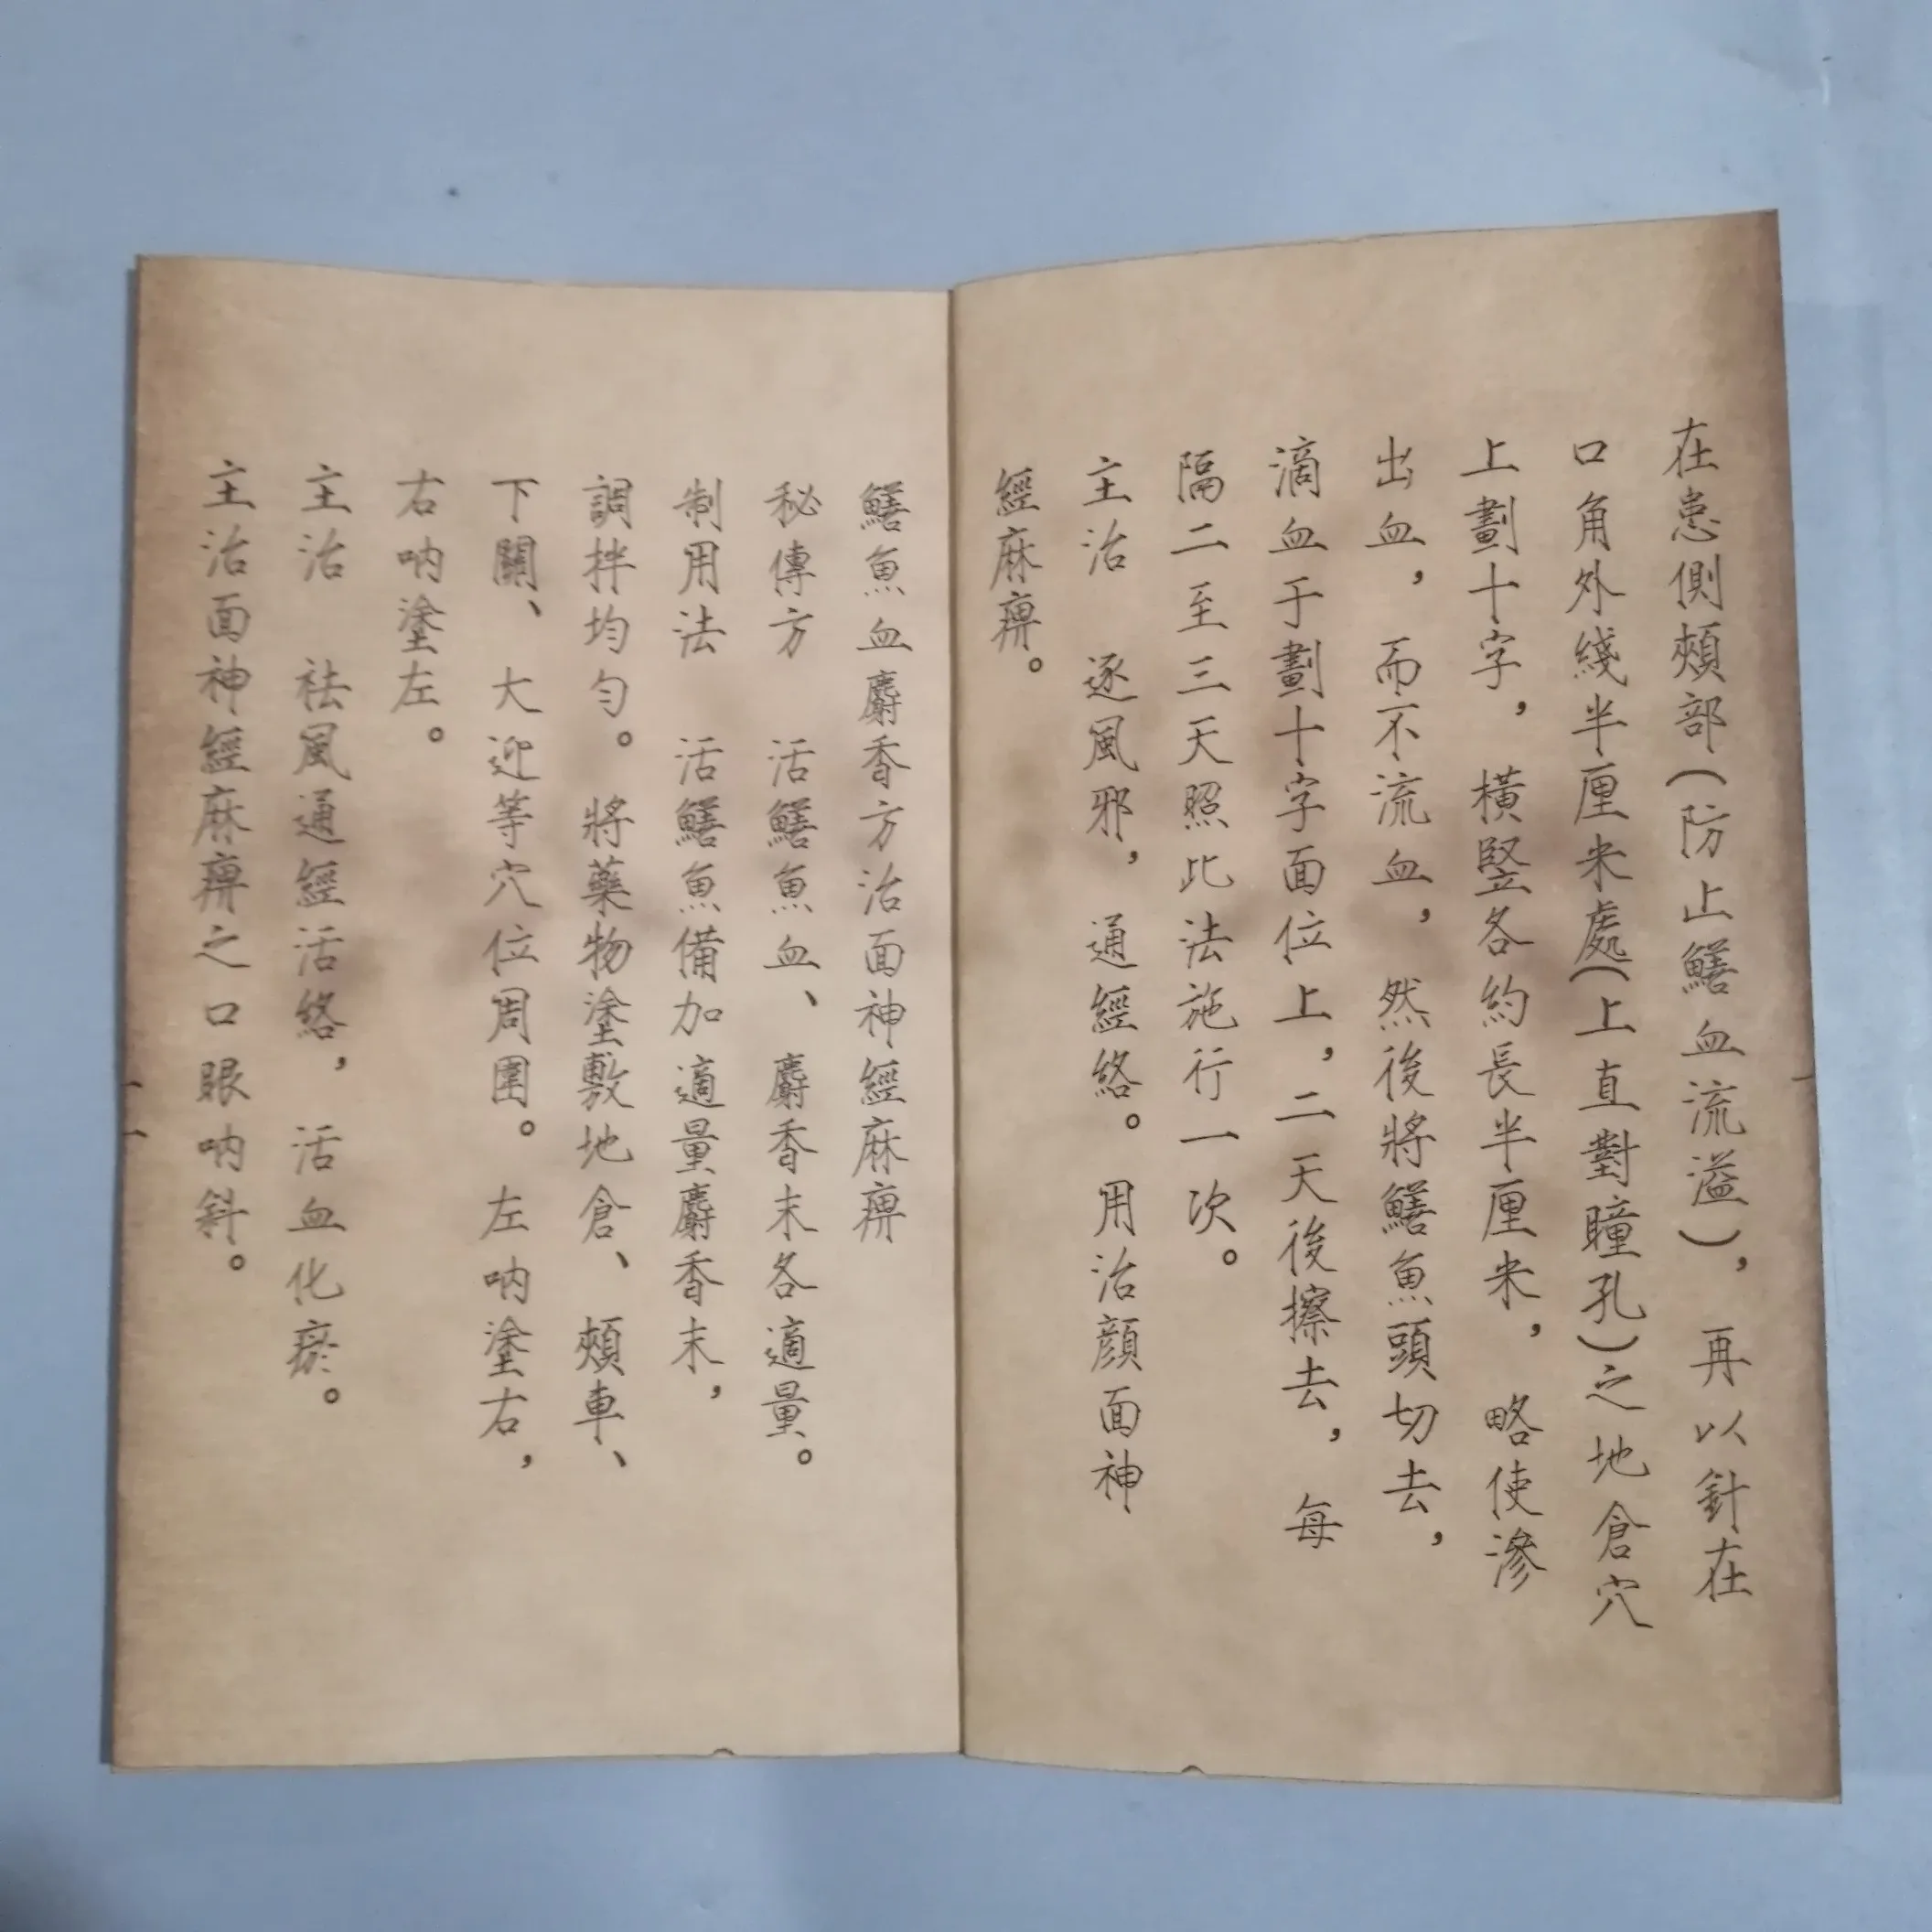 在患側頰部(防止鱔血流溢)，再以針在
口角外綫半厘米處(上直對瞳孔)之地倉穴
上劃十字，橫竪各約長半厘米，略使滲
出血，而不流血，然後將鱔魚頭切去，
滴血于劃十字面位上，二天後擦去，每
隔二至三天照此法施行一次。
主治　逐風邪，通經絡。用治顔面神
經麻痹。
鱔魚血麝香方治面神經麻痹
秘傳方　活鱔魚血、麝香末各適量。
制用法　活鱔魚備加適量麝香末，
調拌均勻。將藥物塗敷地倉、頰車、
下關、大迎等穴位周圍。左吶塗右，
右吶塗左。
主治　祛風通經活絡，活血化瘀。
主治面神經麻痹之口眼吶斜。